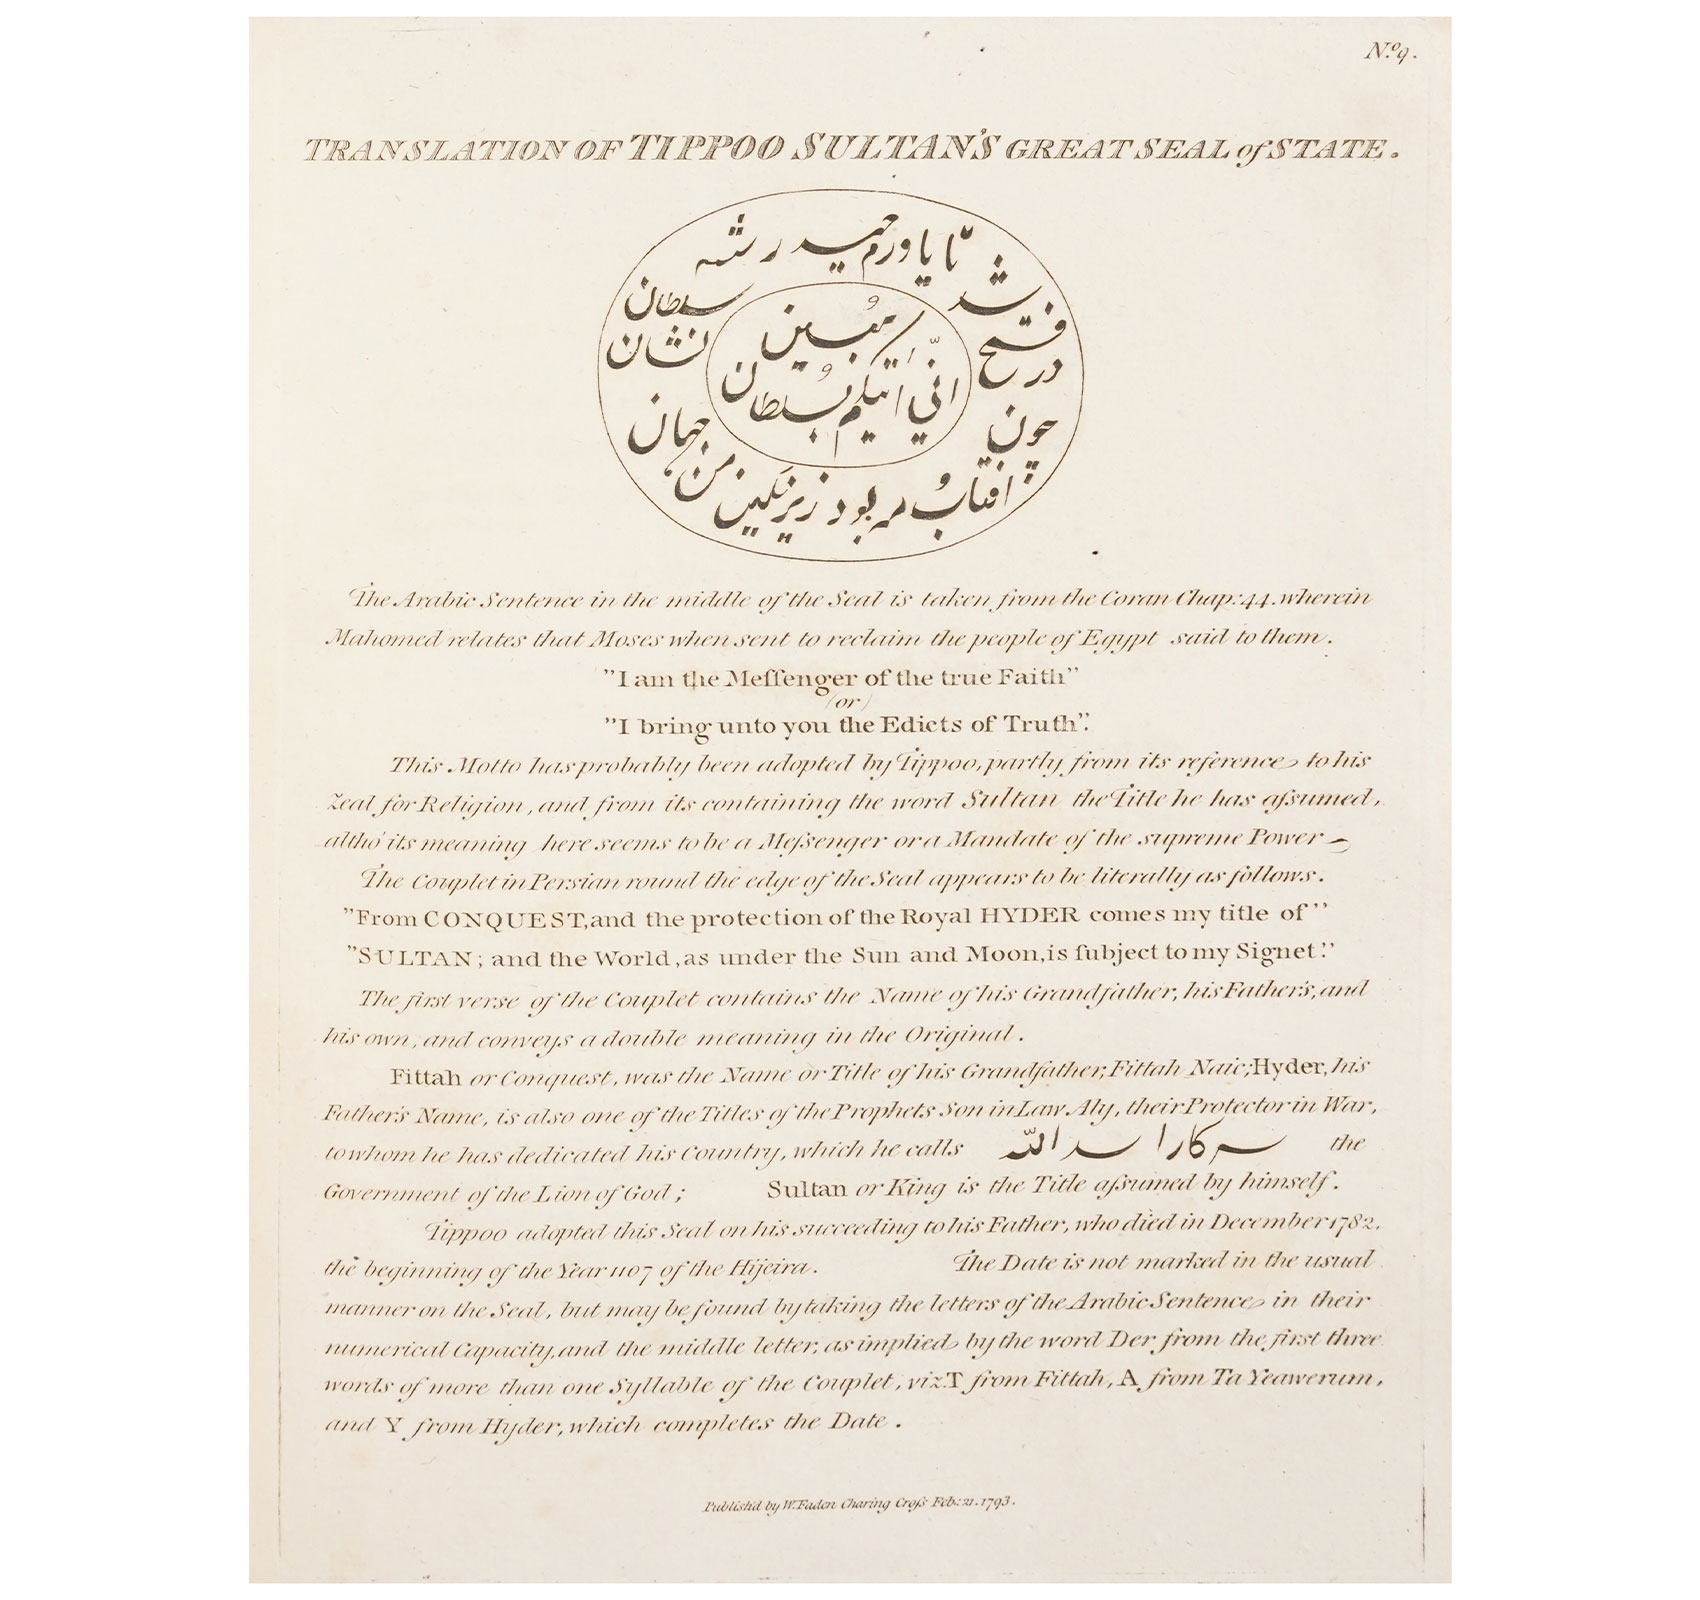 Nº.9.
TRANSLATION OF TIPPOO SULTAN'S GREAT SEAL of STATE.
تا یاورم حیدر شه
سلطان
نشان
جهان
من
شد
در فتح
چون
افتاب و مه بود زیر نگین
مبین
انّي اتيكم بسلطان
The Arabic Sentence in the middle of the Seal is taken from the Coran Chap: 44. wherein
Mahomed relates that Moses when sent to reclaim the people of Egypt said to them.
"I am the Meſſenger of the true Faith"
(or)
"I bring unto you the Edicts of Truth".
This Motto has probably been adopted by Tippoo, partly from its reference to his
Zeal for Religion, and from its containing the word Sultan the Title he has aſsumed,
altho' its meaning here seems to be a Meſsenger or a Mandate of the supreme Power
The Couplet in Persian round the edge of the Seal appears to be literally as follows.
"From CONQUEST, and the protection of the Royal HYDER comes my title of"
"SULTAN; and the World, as under the Sun and Moon, is ſubject to my Signet."
The first verse of the Couplet contains the Name of his Grandfather, his Father's, and
his own, and conveys a double meaning in the Original.
Fittah or Conquest, was the Name or Title of his Grandfather, Fittah Naic; Hyder, his
Father's Name, is also one of the Titles of the Prophets Son in Law Aly, their Protector in War,
to whom he has dedicated his Country, which he calls سركار اسد اللّه the
Government of the Lion of God; Sultan or King is the Title aſsumed by himself.
Tippoo adopted this Seal on his succeeding to his Father, who died in December 1782.
the beginning of the Year 1107 of the Hijeira. The Date is not marked in the usual
manner on the Seal, but may be found by taking the letters of the Arabic Sentence in their
numerical Capacity, and the middle letter, as implied by the word Der from the first three
words of more than one Syllable of the Couplet, viz. T from Fittah, A from Ta Yeawerum,
and Y from Hyder, which completes the Date.
Publish'd by W. Faden Charing Croſs Feb: 21. 1793.